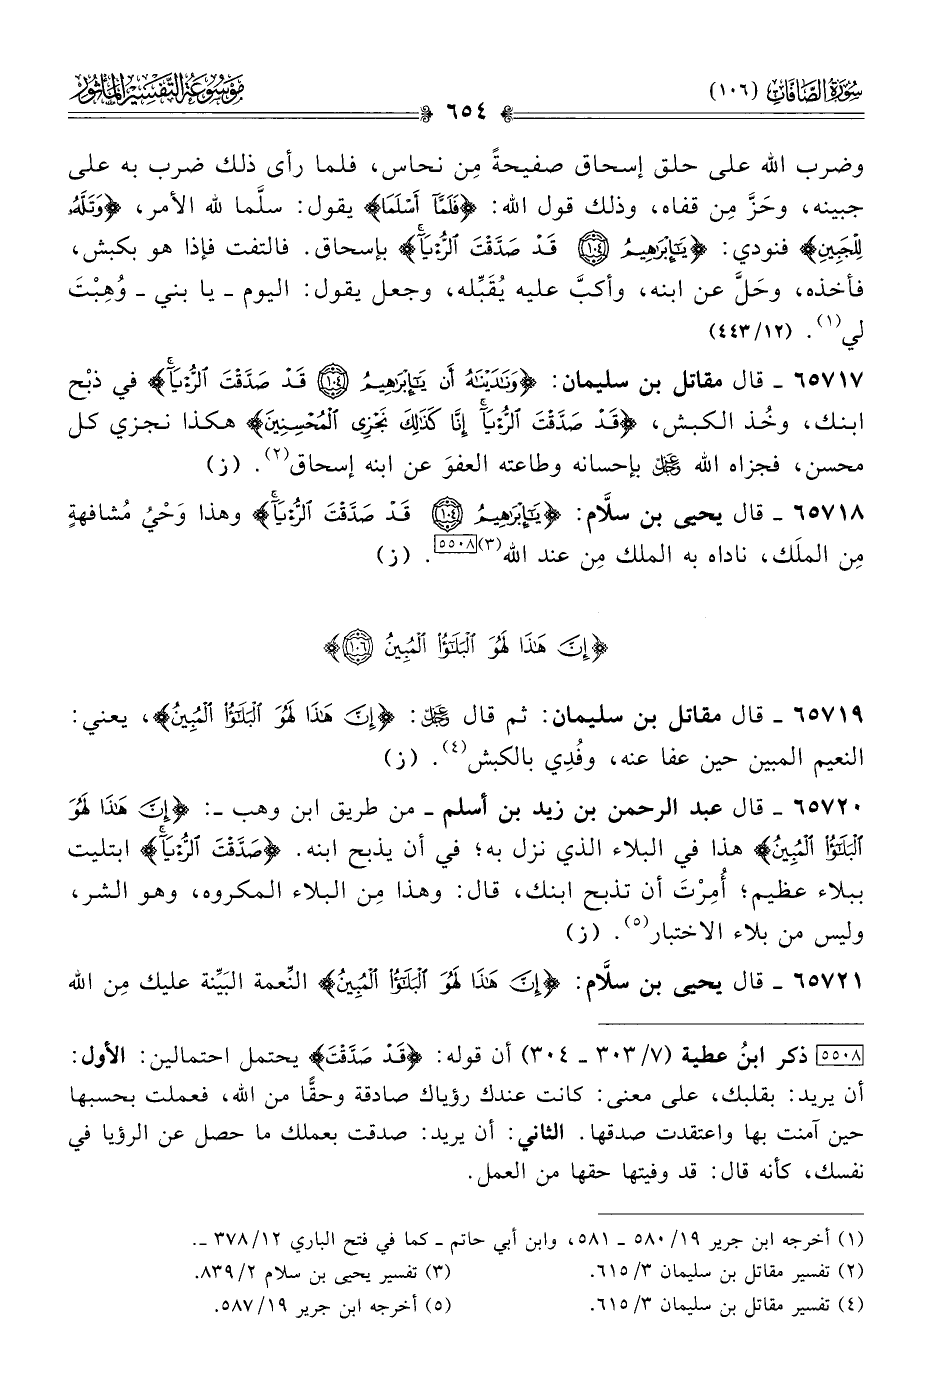 سُورَةُ الصَّافَّات (١٠٦)
٦٥٤
مَوْسُوعَةُ التَّفْسِيرِ المَأْثُور
وضرب الله على حلق إسحاق صفيحةً مِن نحاس، فلما رأى ذلك ضرب به على
جبينه، وحَزَّ مِن قفاه، وذلك قول الله: ﴿فَلَمَّآ أَسْلَمَا﴾ يقول: سلَّما لله الأمر، ﴿وَتَلَّهُۥ
لِلْجَبِينِ﴾ فنودي: ﴿يَٰٓإِبْرَٰهِيمُ ١٠٤ قَدْ صَدَّقْتَ ٱلرُّءْيَآ﴾ بإسحاق. فالتفت فإذا هو بكبش،
فأخذه، وحَلَّ عن ابنه، وأكبَّ عليه يُقَبِّله، وجعل يقول: اليوم ـ يا بني ـ وُهِبْتَ
لي(١). (١٢/ ٤٤٣)
٦٥٧١٧ ـ قال مقاتل بن سليمان: ﴿وَنَٰدَيْنَٰهُ أَن يَٰٓإِبْرَٰهِيمُ ١٠٤ قَدْ صَدَّقْتَ ٱلرُّءْيَآ﴾ في ذبْح
ابنك، وخُذ الكبش، ﴿قَدْ صَدَّقْتَ ٱلرُّءْيَآ إِنَّا كَذَٰلِكَ نَجْزِى ٱلْمُحْسِنِينَ﴾ هكذا نجزي كل
محسن، فجزاه الله ﷻ بإحسانه وطاعته العفوَ عن ابنه إسحاق(٢). (ز)
٦٥٧١٨ ـ قال يحيى بن سلَّام: ﴿يَٰٓإِبْرَٰهِيمُ ١٠٤ قَدْ صَدَّقْتَ ٱلرُّءْيَآ﴾ وهذا وَحْيُ مُشافهةٍ
مِن الملَك، ناداه به الملك مِن عند الله(٣)[٥٥٠٨]. (ز)
﴿إِنَّ هَٰذَا لَهُوَ ٱلْبَلَٰٓؤُا۟ ٱلْمُبِينُ ١٠٦﴾
٦٥٧١٩ ـ قال مقاتل بن سليمان: ثم قال ﷻ: ﴿إِنَّ هَٰذَا لَهُوَ ٱلْبَلَٰٓؤُا۟ ٱلْمُبِينُ﴾، يعني:
النعيم المبين حين عفا عنه، وفُدِي بالكبش(٤). (ز)
٦٥٧٢٠ ـ قال عبد الرحمن بن زيد بن أسلم ـ من طريق ابن وهب ـ: ﴿إِنَّ هَٰذَا لَهُوَ
ٱلْبَلَٰٓؤُا۟ ٱلْمُبِينُ﴾ هذا في البلاء الذي نزل به؛ في أن يذبح ابنه. ﴿صَدَّقْتَ ٱلرُّءْيَآ﴾ ابتليت
ببلاء عظيم؛ أُمِرْتَ أن تذبح ابنك، قال: وهذا مِن البلاء المكروه، وهو الشر،
وليس من بلاء الاختبار(٥). (ز)
٦٥٧٢١ ـ قال يحيى بن سلَّام: ﴿إِنَّ هَٰذَا لَهُوَ ٱلْبَلَٰٓؤُا۟ ٱلْمُبِينُ﴾ النِّعمة البَيِّنة عليك مِن الله
[٥٥٠٨] ذكر ابنُ عطية (٧/ ٣٠٣ ـ ٣٠٤) أن قوله: ﴿قَدْ صَدَّقْتَ﴾ يحتمل احتمالين: الأول:
أن يريد: بقلبك، على معنى: كانت عندك رؤياك صادقة وحقًّا من الله، فعملت بحسبها
حين آمنت بها واعتقدت صدقها. الثاني: أن يريد: صدقت بعملك ما حصل عن الرؤيا في
نفسك، كأنه قال: قد وفيتها حقها من العمل.
(١) أخرجه ابن جرير ١٩/ ٥٨٠ ـ ٥٨١، وابن أبي حاتم ـ كما في فتح الباري ١٢/ ٣٧٨ ـ.
(٢) تفسير مقاتل بن سليمان ٣/ ٦١٥. (٣) تفسير يحيى بن سلام ٢/ ٨٣٩.
(٤) تفسير مقاتل بن سليمان ٣/ ٦١٥. (٥) أخرجه ابن جرير ١٩/ ٥٨٧.